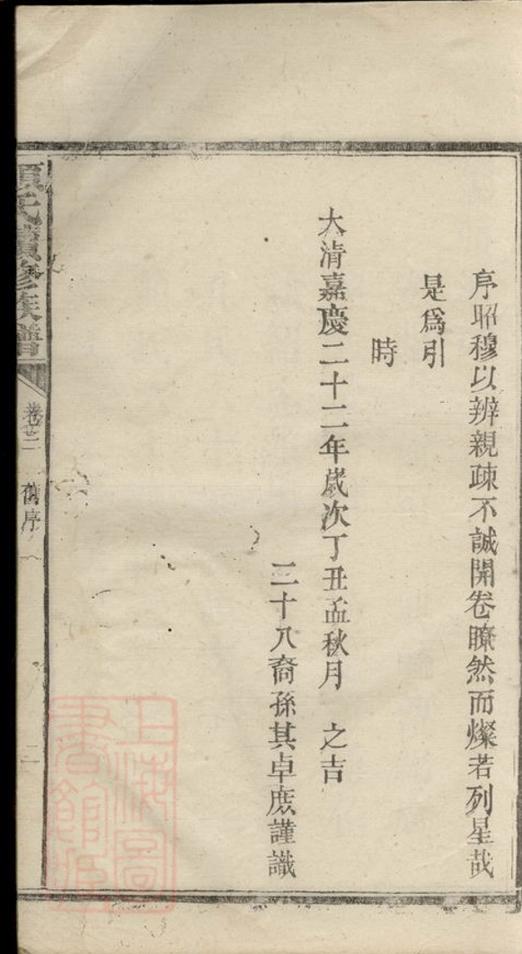 序昭穆以辨親疎不誠開卷瞭然而燦若列星哉
是爲引
時
大清嘉慶二十二年歲次丁丑孟秋月 之吉
三十八裔孫其卓庶謹識
氏續修族譜
卷三 舊序 二
上海圖書館藏